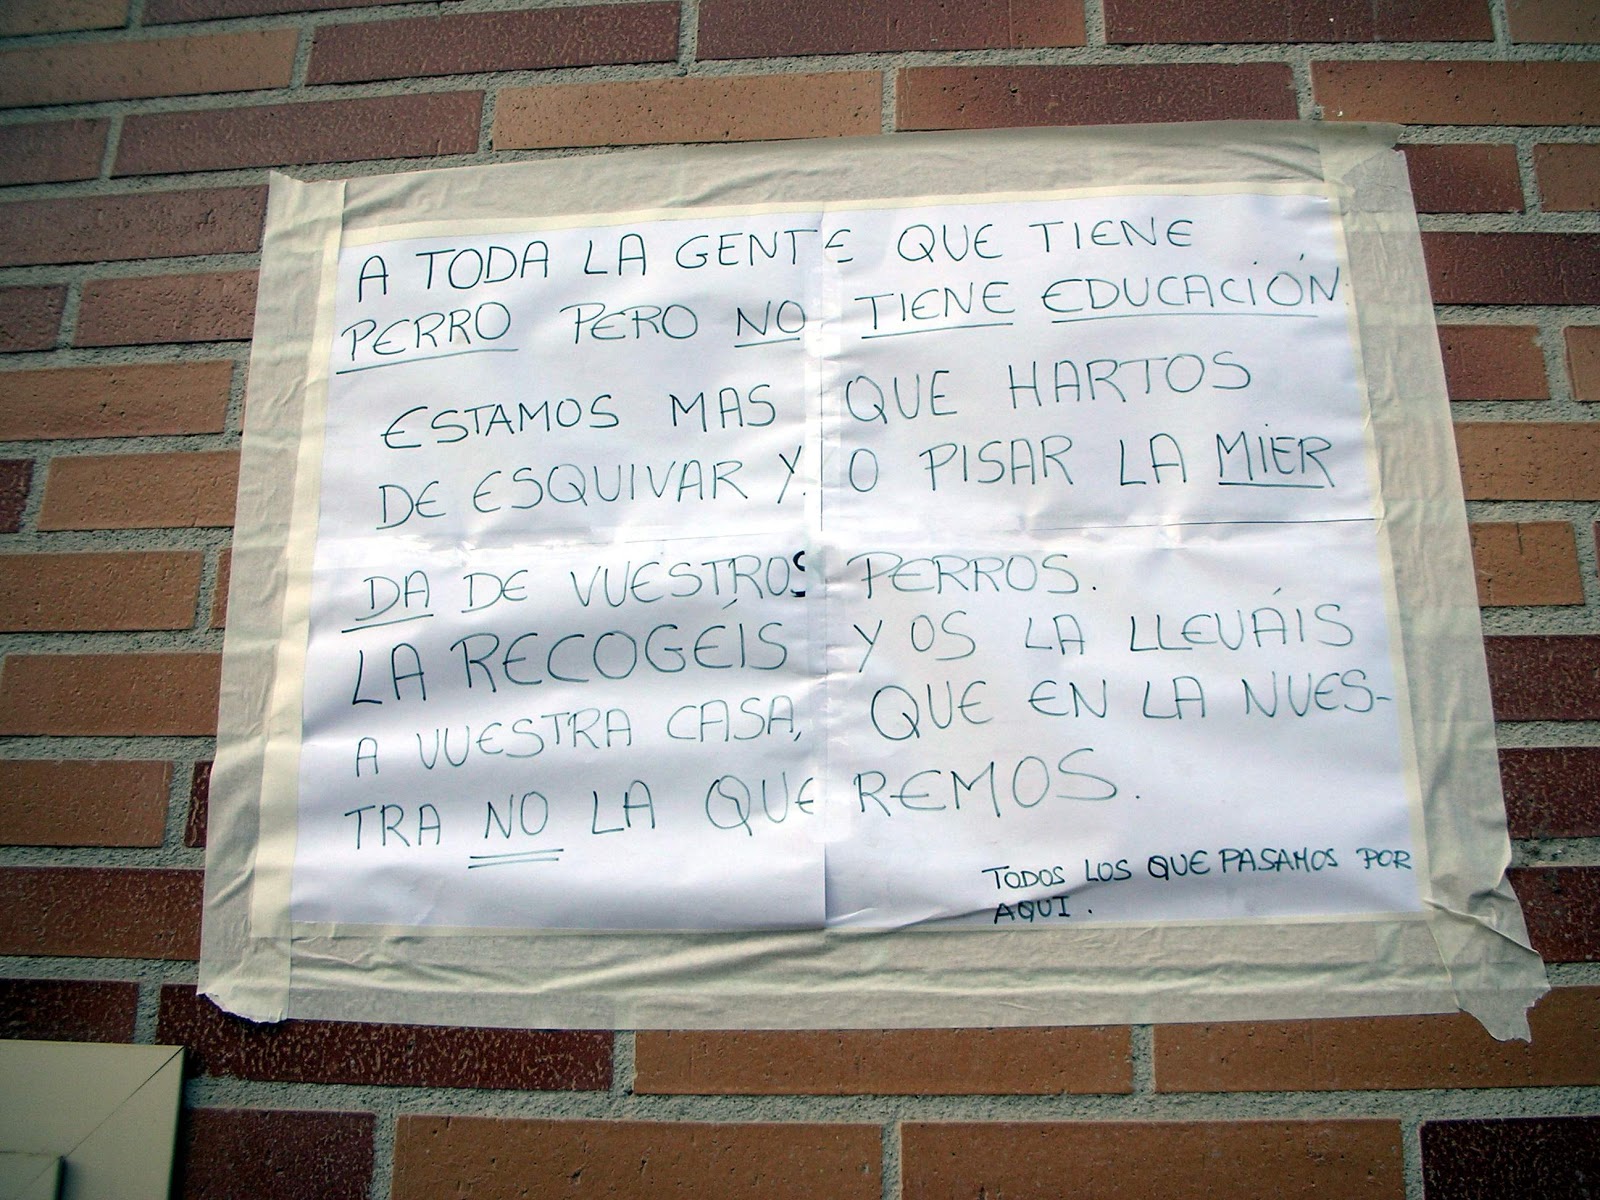 A TODA LA GENTE QUE TIENE
PERRO PERO NO TIENE EDUCACIÓN.
ESTAMOS MAS QUE HARTOS
DE ESQUIVAR Y O PISAR LA MIER
DA DE VUESTROS PERROS.
LA RECOGÉIS Y OS LA LLEVÁIS
A VUESTRA CASA, QUE EN LA NUES-
TRA NO LA QUEREMOS.
TODOS LOS QUE PASAMOS POR
AQUI.